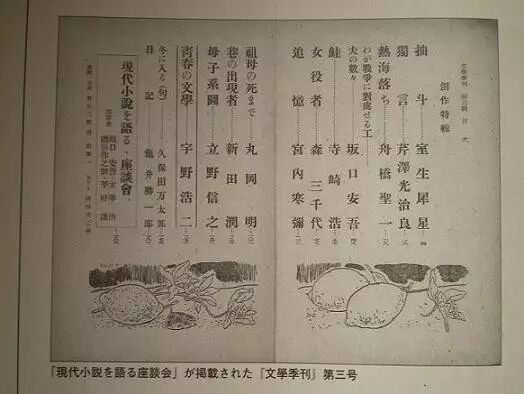 創作特輯
抽斗 室生犀星
獨言 芹澤光治良
熱海落ち 舟橋聖一
わが戰爭に對處せる工
夫の數々 坂口安吾
鮭 寺崎浩
女役者 森三千代
追憶 宮内寒彌
祖母の死まで 丸岡明
巷の出現者 新田潤
母子系圖 立野信之
靑春の文學 宇野浩二
冬に入る(句) 久保田万太郎
日記 龜井勝一郎
現代小說を語る・座談會
坂口安吾・太宰治
織田作之助・平野謙
「現代小説を語る座談会」が掲載された『文學季刊』第三号